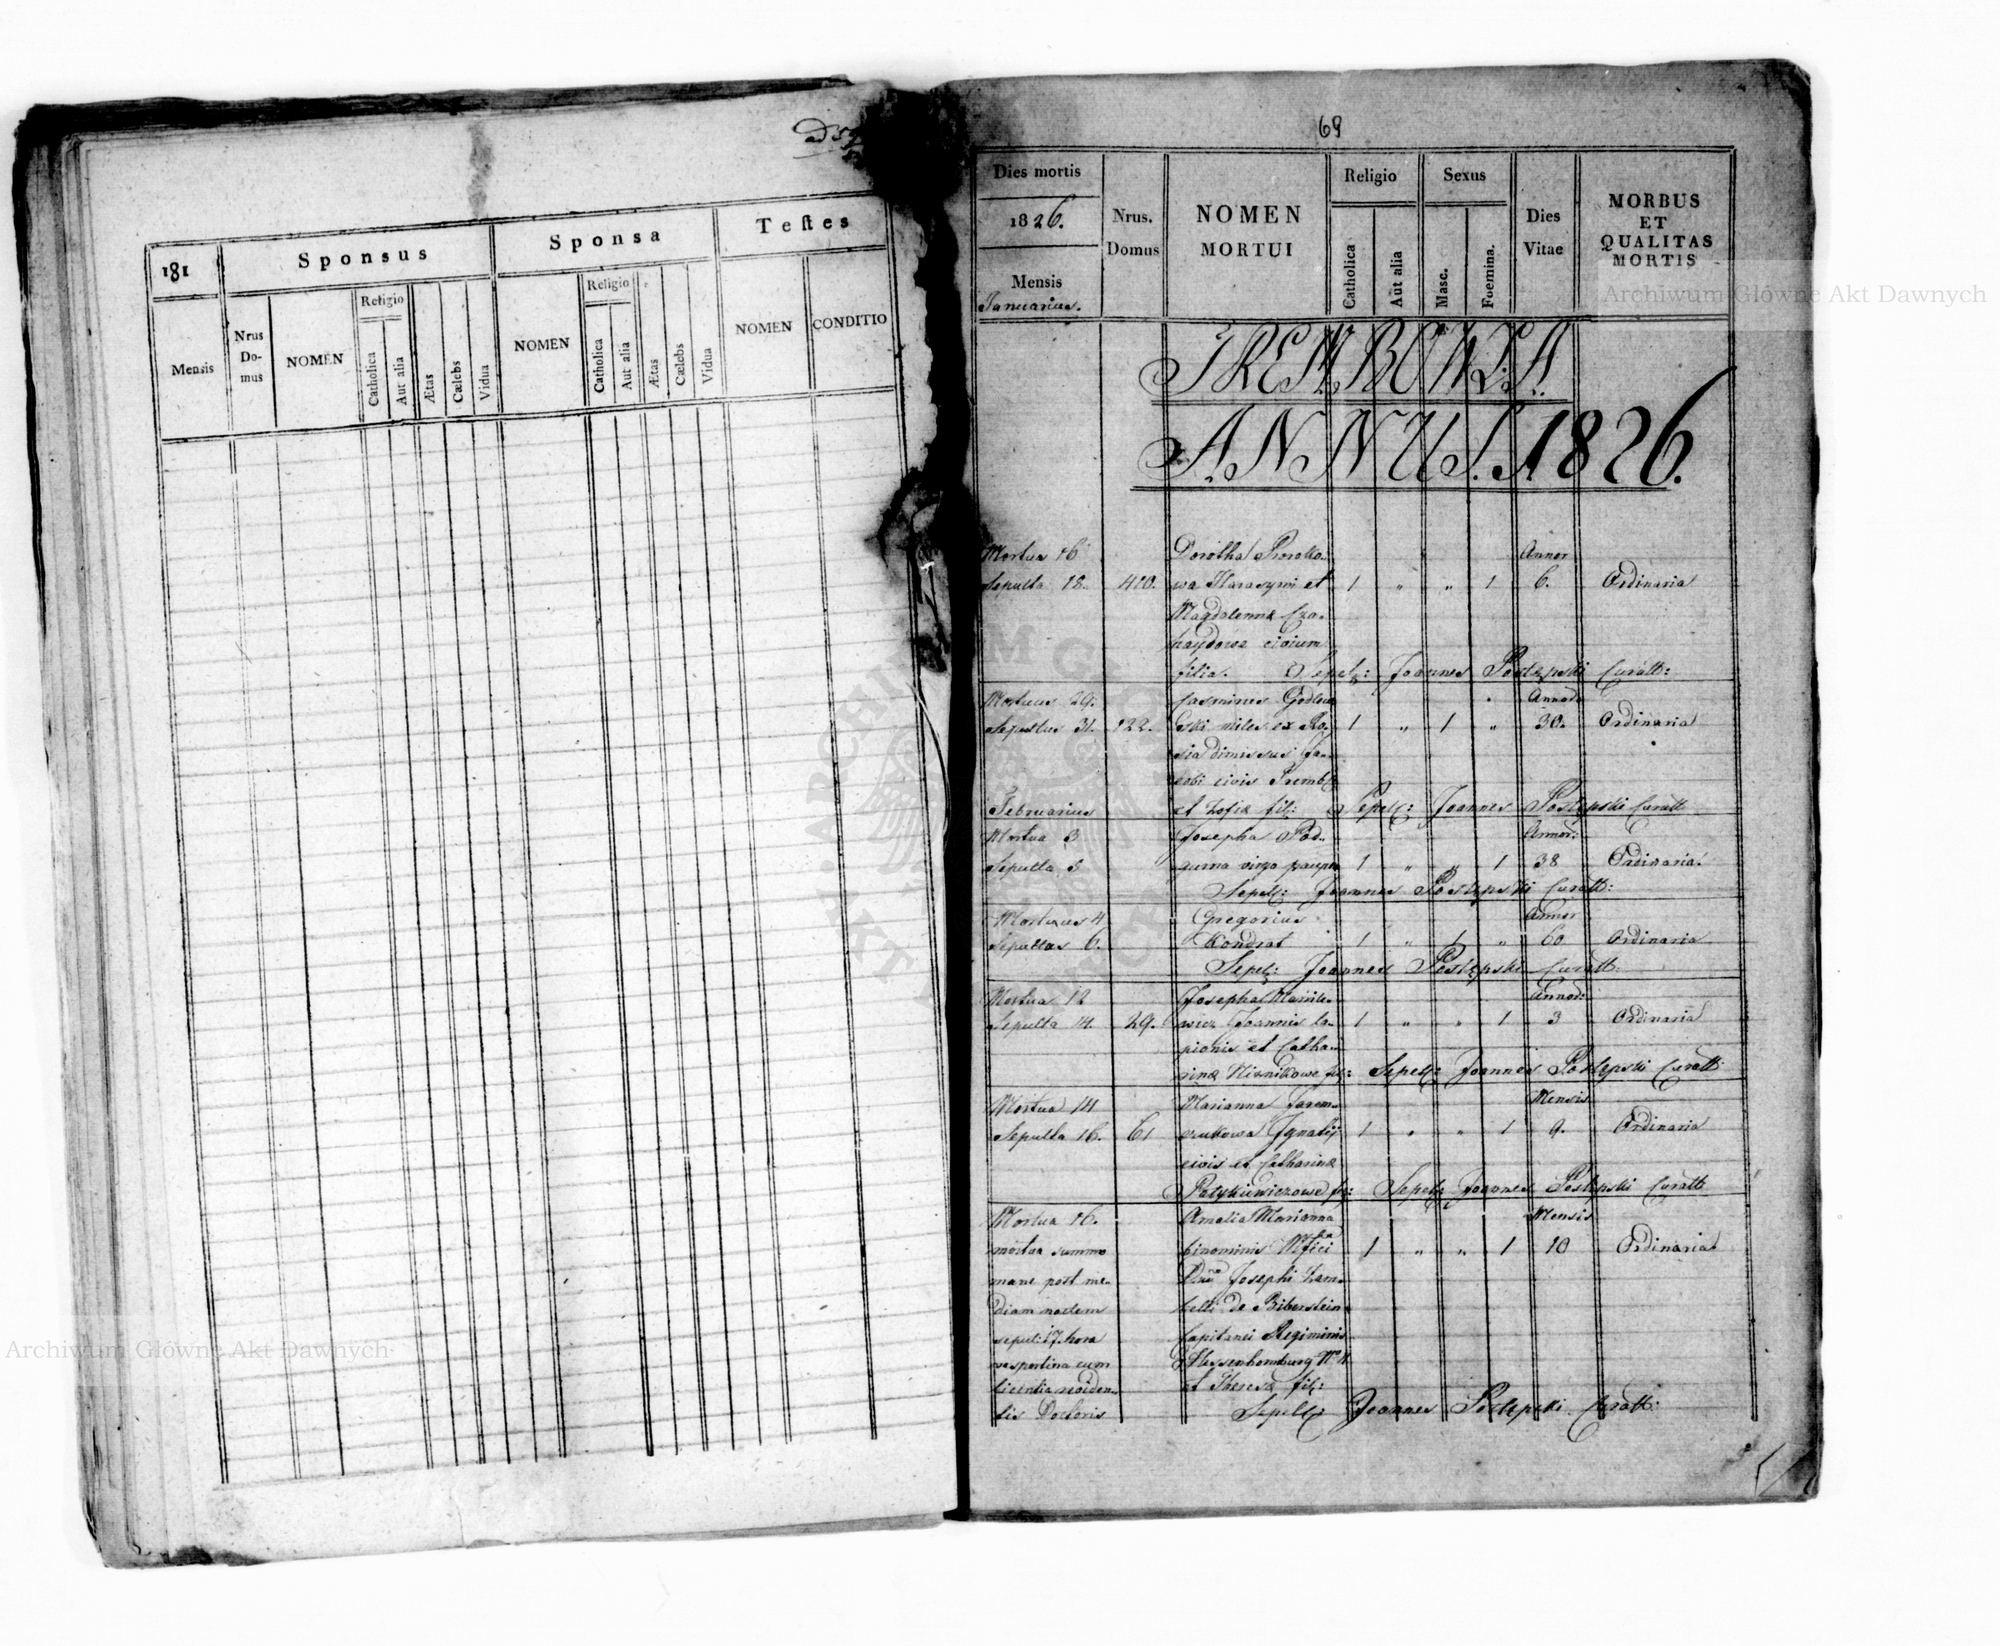 181
Sponsus
Sponsa
Teſtes
Mensis
Nrus Do- mus
NOMEN
Religio
Catholica
Aut alia
Ætas
Cælebs
Vidua
NOMEN
Religio
Catholica
Aut alia
Ætas
Cælebs
Vidua
NOMEN
CONDITIO
69
Dies mortis
1826.
Mensis
Januarius.
Nrus.
Domus
NOMEN
MORTUI
Religio
Catholica
Aut alia
Sexus
Masc.
Foemina.
Dies
Vitae
MORBUS
ET
QUALITAS
MORTIS
TREMBOWLA
ANNUS 1826.
Mortua 16 Dorotha Annor
Sepulta 18. 410. wa Harasymi et 1 " " 1 6. Ordinaria
Magdalenna
civium
filia. Sepel: Joannes Postępski Curatt:
Mortuus 29. Annor
Sepultus 31. 122. miles ex 1 " 1 " 30. Ordinaria
dimissus Ja-
cobi civis Trembl
Februarius et Zofiæ fil: Sepel: Joannes Postępski Curatt
Mortua 3 Josepha Pod- Annor:
Sepulta 5 gurna virgo pauper 1 " " 1 38 Ordinaria.
Sepel: Joannes Postępski Curatt:
Mortuus 4 Gregorius Annor
Sepultus 6. Kondrat 1 " 1 " 60 Ordinaria
Sepel: Joannes Postępski Curatt.
Mortua 12 Josepha Annor:
Sepulta 14. 29. wicz Joannis 1 " " 1 3 Ordinaria
pionis et Catha-
rinæ fil: Sepel: Joannes Postępski Curatt:
Mortua 14 Marianna Jarem- Mensis
Sepulta 16. 61 czukowa Ignatij 1 " " 1 9. Ordinaria
civis et Catharinæ
Patykiewiczowe fil: Sepel: Joannes Postępski Curatt
Mortua 16. Amalia Marianna Mensis
mortua summo binominis 1 " " 1 10 Ordinaria
mane post me- Josephi Zam-
diam noctem belli de Biberstein
sepul: 17. hora Capitanei Regiminis
vespertina cum Hessenhomburg No 4
licentia et Theresæ fil:
tis Doctoris Sepel: Joannes Postępski Curatt:
Archiwum Główne Akt Dawnych
Archiwum Główne Akt Dawnych